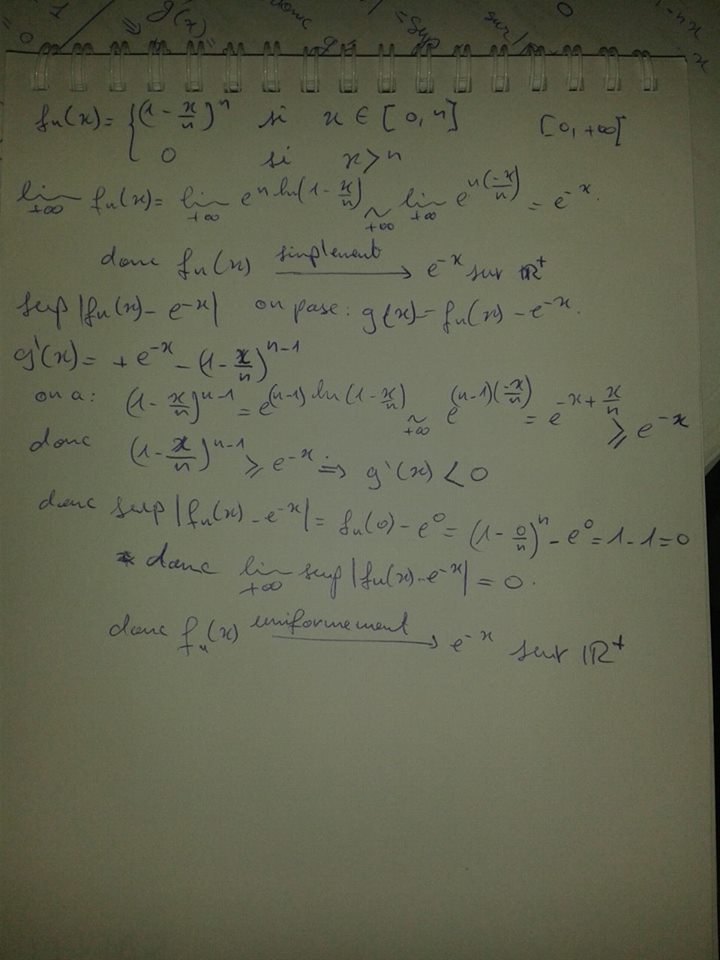 1 g(x) donc = sup sur 0 1-nx
0 x
fn(x) = { (1 - x/n)^n si x ∈ [0, n] [0, +∞]
0 si x > n
lim +∞ fn(x) = lim +∞ e^{n ln(1 - x/n)} ~ +∞ lim +∞ e^{n(-x/n)} = e^{-x}.
donc fn(x) simplement → e^{-x} sur ℝ^+
sup |fn(x) - e^{-x}| on pose : g(x) = fn(x) - e^{-x}.
g'(x) = + e^{-x} - (1 - x/n)^{n-1}
on a : (1 - x/n)^{n-1} = e^{(n-1) ln(1 - x/n)} ~ +∞ e^{(n-1)(-x/n)} = e^{-x + x/n} ≥ e^{-x}
donc (1 - x/n)^{n-1} ≥ e^{-x} ⇒ g'(x) < 0
donc sup |fn(x) - e^{-x}| = fn(0) - e^0 = (1 - 0/n)^n - e^0 = 1 - 1 = 0
donc lim +∞ sup |fn(x) - e^{-x}| = 0.
donc fn(x) uniformement → e^{-x} sur ℝ^+